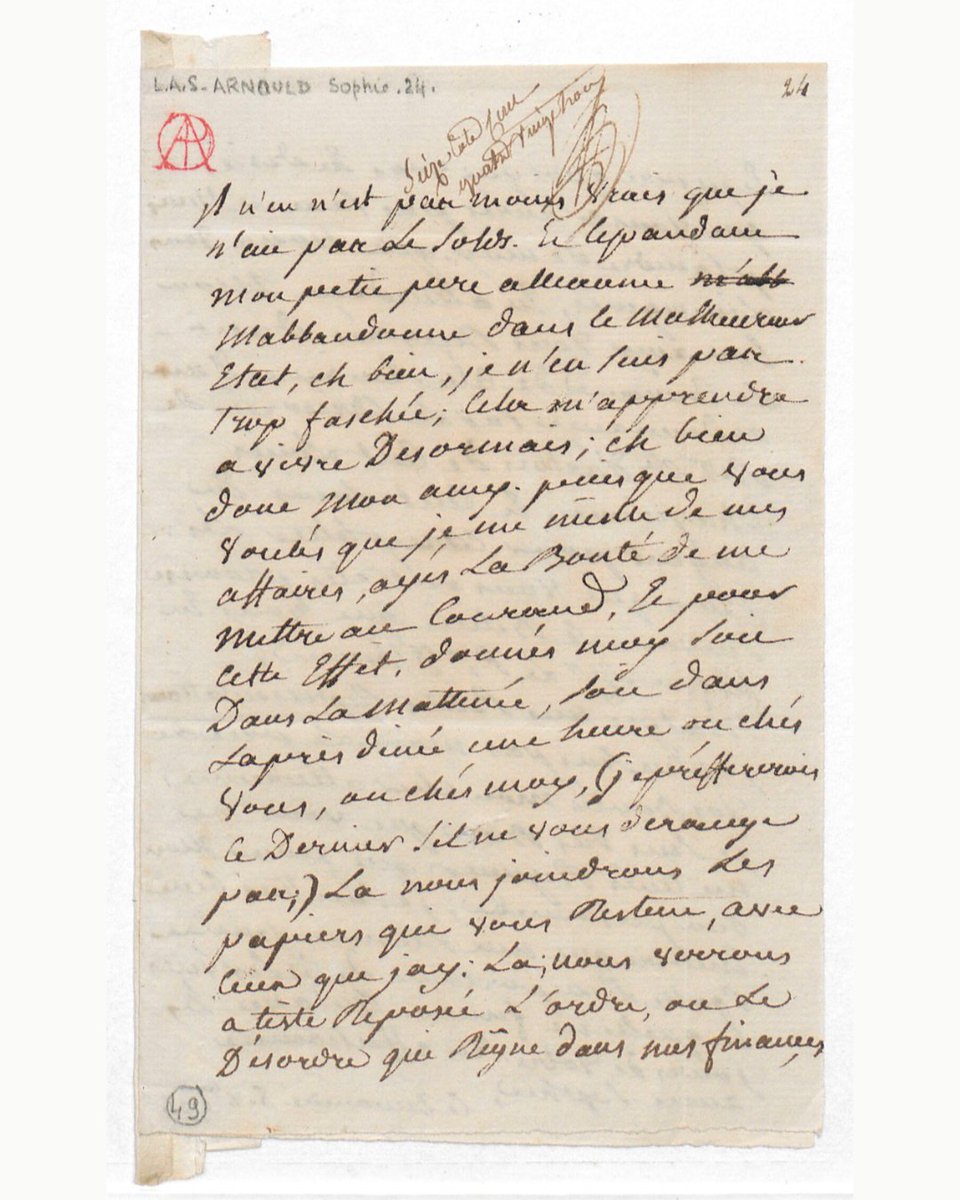 L.A.S. ARNOULD Sophie. 24.
24
AR
Il n'en n'est pas moins vrais que je
n'aie pas Le Sols. Et Cepandant
mon petit pere alleaume m'abb
Mabbandonne dans le Malheureux
Etat, eh bien, je n'en suis pas
trop faschée; Cela m'apprendra
a vivre Desormais; eh bien
donc mon amy. puisque vous
voulés que je me mesle de mes
affaires, ayés La Bonté de me
mettre au Courand, Et pour
Cette Effet, donnés moy soit
Dans La Mattinée, soit dans
L'aprés dinée une heure ou chés
vous, ou chés moy, (je préfferrerois
ce Dernier s'il ne vous derange
pas;) La nous joindrons Les
papiers qui vous Restent, avec
Ceux que jay: La; nous verrons
a teste Reposée L'ordre, ou Le
Désordre qui Règne dans mes finances,
49